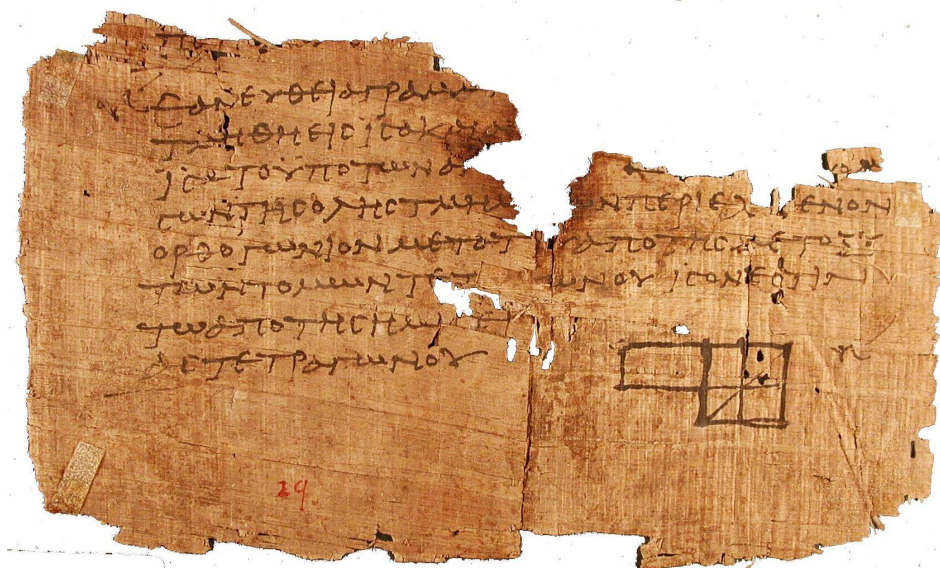 ΕΑΝ ΕΥΘΕΙΑ ΓΡΑΜΜ
ΤΜΗΘΗ ΕΙϹ ΙϹΑ Κ
ΙϹΑ ΤΟ ΥΠΟ ΤΩΝ Α
ϹΩΝ ΤΗϹ ΟΛΗϹ ΤΜΗΜ ΩΝ ΠΕΡΙΕΧ ΜΕΝΟΝ
ΟΡΘΟΓΩΝΙΟΝ ΜΕΤΑ Τ ΑΠΟ ΤΗϹ ΜΕΤΟΞΥ
ΤΩΝ ΤΟΜΩΝ ΤΕΤ ΩΝΟΥ ΙϹΟΝ ΕϹΤΙΝ
ΤΩ ΑΠΟ ΤΗϹ ΗΜΙϹΕΙ
ΑϹ ΤΕΤΡΑΓΩΝΟΥ
29